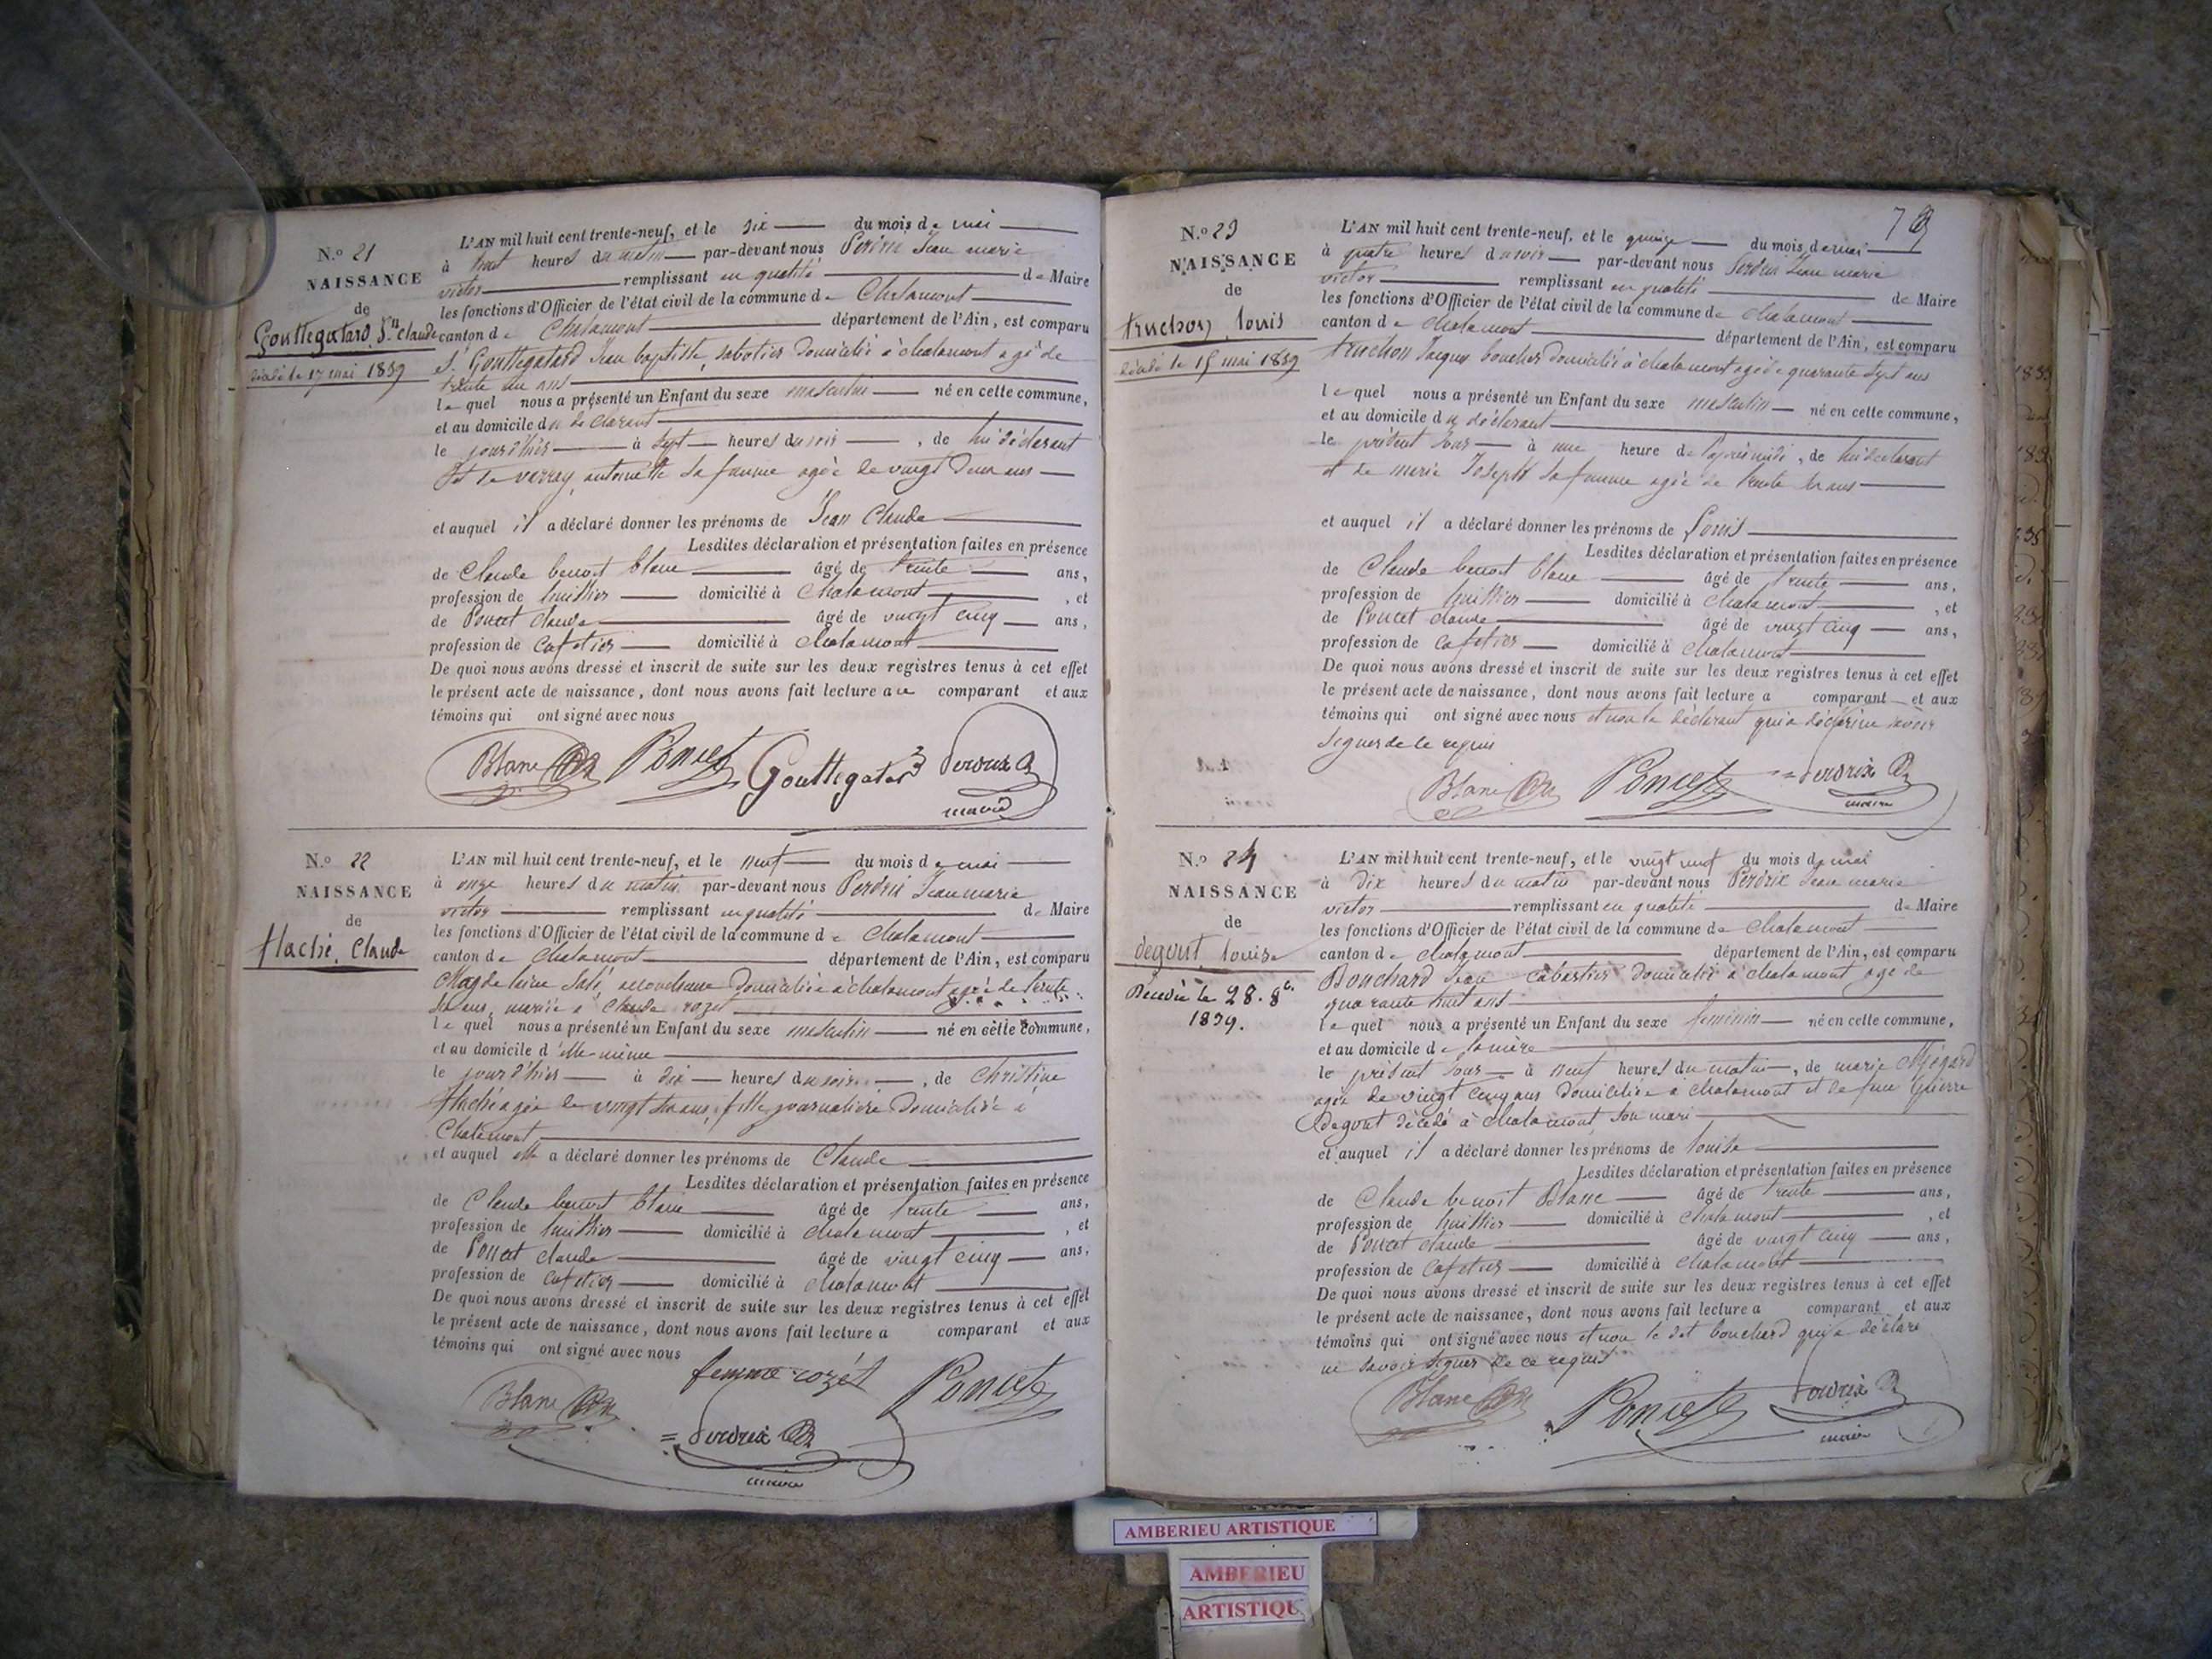 N.º 21
NAISSANCE
de
Gouttegatard, Jn Claude
décédé le 17 mai 1839
L'AN mil huit cent trente-neuf, et le six du mois de mai
à huit heures du matin par-devant nous Perdrix Jean marie
victor remplissant en qualité de Maire
les fonctions d'Officier de l'état civil de la commune de Chalamont
canton de Chalamont département de l'Ain, est comparu
S. Gouttegatard Jean baptiste, sabotier domicilié à chalamont agé de
trente un ans
le quel nous a présenté un Enfant du sexe masculin né en cette commune,
et au domicile du declarant
le jour d'hier à sept heures du soir, de lui déclarant
Et de varray antoinette sa femme agée de vingt deux ans
et auquel il a déclaré donner les prénoms de Jean Claude
Lesdites déclaration et présentation faites en présence
de Claude benoit blanc âgé de trente ans,
profession de huissier domicilié à Chalamont, et
de Poncet claude âgé de vingt cinq ans,
profession de Cafetier domicilié à Chalamont
De quoi nous avons dressé et inscrit de suite sur les deux registres tenus à cet effet
le présent acte de naissance, dont nous avons fait lecture au comparant et aux
témoins qui ont signé avec nous
Blanc Poncet Gouttegatar Perdrix
maire
N.º 22
NAISSANCE
de
flaché, Claude
L'AN mil huit cent trente-neuf, et le neuf du mois de mai
à onze heures du matin par-devant nous Perdrix Jean marie
victor remplissant en qualité de Maire
les fonctions d'Officier de l'état civil de la commune de Chalamont
canton de Chalamont département de l'Ain, est comparu
Magdeleine accoucheuse domiciliée à chalamont agée de trente
ans, mariée à Claude rozet
le quel nous a présenté un Enfant du sexe masculin né en cette commune,
et au domicile d'elle même
le jour d'hier à dix heures du soir, de Christine
flaché agée de vingt ans, fille journalière domiciliée à
Chalamont
et auquel elle a déclaré donner les prénoms de Claude
Lesdites déclaration et présentation faites en présence
de Claude benoit blanc âgé de trente ans,
profession de huissier domicilié à chalamont, et
de Poncet claude âgé de vingt cinq ans,
profession de Cafetier domicilié à chalamont
De quoi nous avons dressé et inscrit de suite sur les deux registres tenus à cet effet
le présent acte de naissance, dont nous avons fait lecture a comparant et aux
témoins qui ont signé avec nous
femme rozét Poncet
Blanc
Perdrix
maire
N.º 23
NAISSANCE
de
truchon, louis
décédé le 15 mai 1839
L'AN mil huit cent trente-neuf, et le quinze du mois de mai
à quatre heures du soir par-devant nous Perdrix Jean marie
victor remplissant en qualité de Maire
les fonctions d'Officier de l'état civil de la commune de chalamont
canton de chalamont département de l'Ain, est comparu
truchon Jacques boucher domicilié à chalamont agé de quarante sept ans
le quel nous a présenté un Enfant du sexe masculin né en cette commune,
et au domicile du déclarant
le présent jour à une heure de l'après midi, de lui declarant
et de marie Joseph sa femme agée de trente ans
et auquel il a déclaré donner les prénoms de Louis
Lesdites déclaration et présentation faites en présence
de Claude benoit blanc âgé de trente ans,
profession de huissier domicilié à chalamont, et
de Poncet claude âgé de vingt cinq ans,
profession de Cafetier domicilié à chalamont
De quoi nous avons dressé et inscrit de suite sur les deux registres tenus à cet effet
le présent acte de naissance, dont nous avons fait lecture a comparant et aux
témoins qui ont signé avec nous et non le déclarant qui a déclaré ne savoir
signer de ce requis
Blanc Poncet Perdrix
maire
N.º 24
NAISSANCE
de
degout, louise
Décédée le 28. 8e.
1839.
L'AN mil huit cent trente-neuf, et le vingt neuf du mois de mai
à dix heures du matin par-devant nous Perdrix Jean marie
victor remplissant en qualité de Maire
les fonctions d'Officier de l'état civil de la commune de Chalamont
canton de chalamont département de l'Ain, est comparu
Bouchard Jean cabaretier domicilié à chalamont agé de
quarante huit ans
le quel nous a présenté un Enfant du sexe feminin né en cette commune,
et au domicile de la mère
le présent jour à neuf heures du matin, de marie Mégard
agée de vingt cinq ans domiciliée à chalamont et de feu Pierre
degout décédé à chalamont son mari
et auquel il a déclaré donner les prénoms de louise
Lesdites déclaration et présentation faites en présence
de Claude benoit Blanc âgé de trente ans,
profession de huissier domicilié à chalamont, et
de Poncet claude âgé de vingt cinq ans,
profession de Cafetier domicilié à chalamont
De quoi nous avons dressé et inscrit de suite sur les deux registres tenus à cet effet
le présent acte de naissance, dont nous avons fait lecture a comparant et aux
témoins qui ont signé avec nous et non le dit bouchard qui a déclaré
ne savoir signer de ce requis
Blanc Poncet Perdrix
maire
AMBERIEU ARTISTIQUE
AMBERIEU
ARTISTIQUE